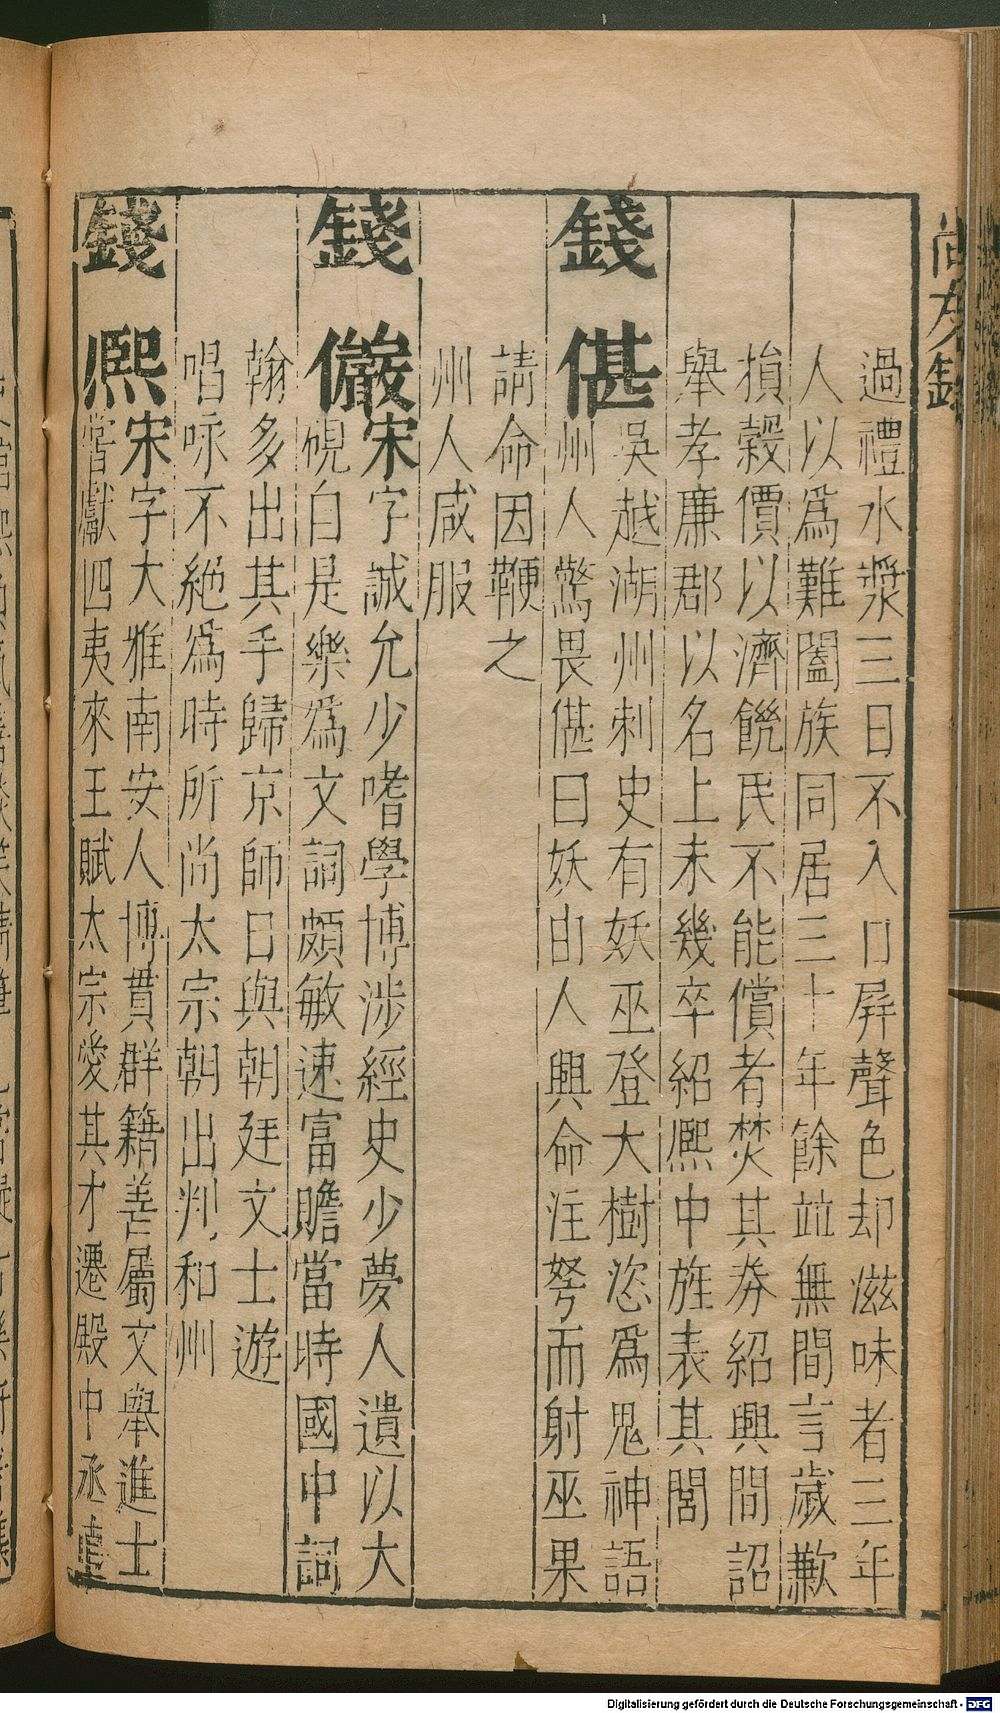 尚友錄
過禮水漿三日不入口屏聲色却滋味者三年
人以為難闔族同居三十年餘並無間言歲歉
損穀價以濟饑民不能償者焚其券紹興間詔
舉孝廉郡以名上未幾卒紹熙中旌表其閭
錢偡
吳越湖州刺史有妖巫登大樹恣為鬼神語
州人驚畏偡曰妖由人興命注弩而射巫果
請命因鞭之
州人咸服
錢儼
宋字誠允少嗜學博涉經史少夢人遺以大
硯自是樂為文詞頗敏速富贍當時國中詞
翰多出其手歸京師日與朝廷文士遊
唱咏不絕為時所尚太宗朝出判和州
錢熙
宋字大雅南安人博貫群籍善屬文舉進士
嘗獻四夷來王賦太宗愛其才遷殿中丞直
Digitalisierung gefördert durch die Deutsche Forschungsgemeinschaft - DFG